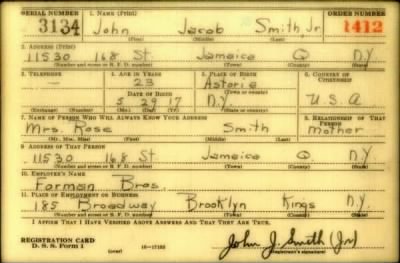 SERIAL NUMBER 1. NAME (Print) ORDER NUMBER
3134 John Jacob Smith Jr 1412
(First) (Middle) (Last)
2. ADDRESS (Print)
11530 168 St Jamaica Q N.Y.
(Number and street or R. F. D. number) (Town) (County) (State)
3. TELEPHONE 4. AGE IN YEARS 5. PLACE OF BIRTH 6. COUNTRY OF CITIZENSHIP
— 23 Astoria
DATE OF BIRTH (Town or county)
5 29 17 N.Y. U.S.A
(Exchange) (Number) (Mo.) (Day) (Yr.) (State or country)
7. NAME OF PERSON WHO WILL ALWAYS KNOW YOUR ADDRESS 8. RELATIONSHIP OF THAT PERSON
Mrs. Rose Smith Mother
(Mr., Mrs., Miss) (First) (Middle) (Last)
9. ADDRESS OF THAT PERSON
11530 168 St Jamaica Q N.Y.
(Number and street or R. F. D. number) (Town) (County) (State)
10. EMPLOYER'S NAME
Forman Bros.
11. PLACE OF EMPLOYMENT OR BUSINESS
185 Broadway Brooklyn Kings N.Y.
(Number and street or R. F. D. number) (Town) (County) (State)
I AFFIRM THAT I HAVE VERIFIED ABOVE ANSWERS AND THAT THEY ARE TRUE.
REGISTRATION CARD
D. S. S. Form 1 (over) 16—17105 John J. Smith (Jr)
(Registrant's signature)